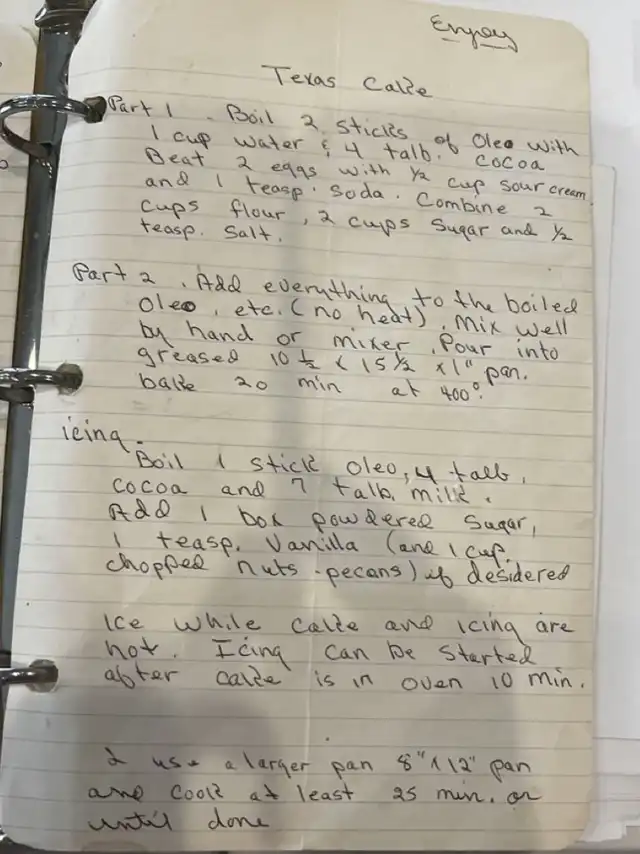 Enjoy
Texas Cake
Part 1 - Boil 2 sticks of Oleo with
1 cup water & 4 talb. cocoa
Beat 2 eggs with 1/2 cup sour cream
and 1 teasp. soda. Combine 2
cups flour, 2 cups sugar and 1/2
teasp. salt.
Part 2. Add everything to the boiled
oleo, etc. (no heat). Mix well
by hand or mixer. Pour into
greased 10 1/2 x 15 1/2 x 1" pan.
bake 20 min at 400°.
icing -
Boil 1 stick oleo, 4 talb,
cocoa and 7 talb. milk.
Add 1 box powdered sugar,
1 teasp. Vanilla (and 1 cup
chopped nuts - pecans) if desidered
Ice while cake and icing are
hot. Icing can be started
after cake is in oven 10 min.
I use a larger pan 8" x 12" pan
and cook at least 25 min. or
until done